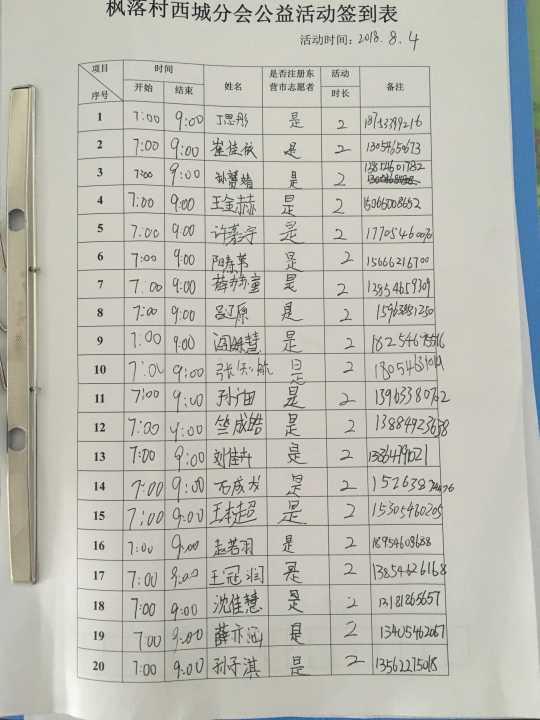 枫落村西城分会公益活动签到表
活动时间: 2018.8.4
项目 序号 时间 开始 结束 姓名 是否注册东营市志愿者 活动时长 备注
1 7:00 9:00 丁思彤 是 2
2 7:00 9:00 崔佳依 是 2
3 7:00 9:00 是 2
4 7:00 9:00 王金赫 是 2 15065008652
5 7:00 9:00 是 2
6 7:00 9:00 是 2 15666216700
7 7:00 9:00 是 2 13854659309
8 7:00 9:00 吕辽原 是 2
9 7:00 9:00 是 2
10 7:00 9:00 是 2
11 7:00 9:00 是 2 13963380762
12 7:00 9:00 竺成皓 是 2 13884923658
13 7:00 9:00 刘佳卉 是 2
14 7:00 9:00 石成龙 是 2
15 7:00 9:00 是 2 15305460205
16 7:00 9:00 赵若羽 是 2 18954608688
17 7:00 9:00 王冠润 是 2 13854626168
18 7:00 9:00 沈佳慧 是 2 13181865657
19 7:00 9:00 薛亦涵 是 2 13405462067
20 7:00 9:00 孙子淇 是 2 13562275018